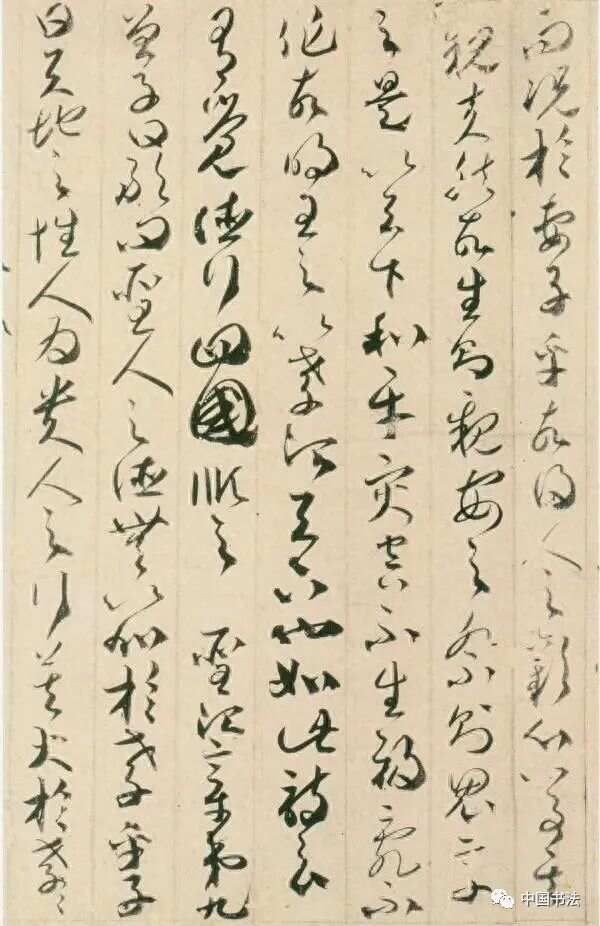 而況於妻子乎故得人之歡心以事其
親夫然故生則親安之祭則鬼享
之是以天下和平灾害不生禍亂不
作故明王之以孝治天下也如此詩云
有覺德行四國順之 聖治章第九
曾子曰敢問聖人之德無以加於孝乎子
曰天地之性人為貴人之行莫大於孝〻
中国书法